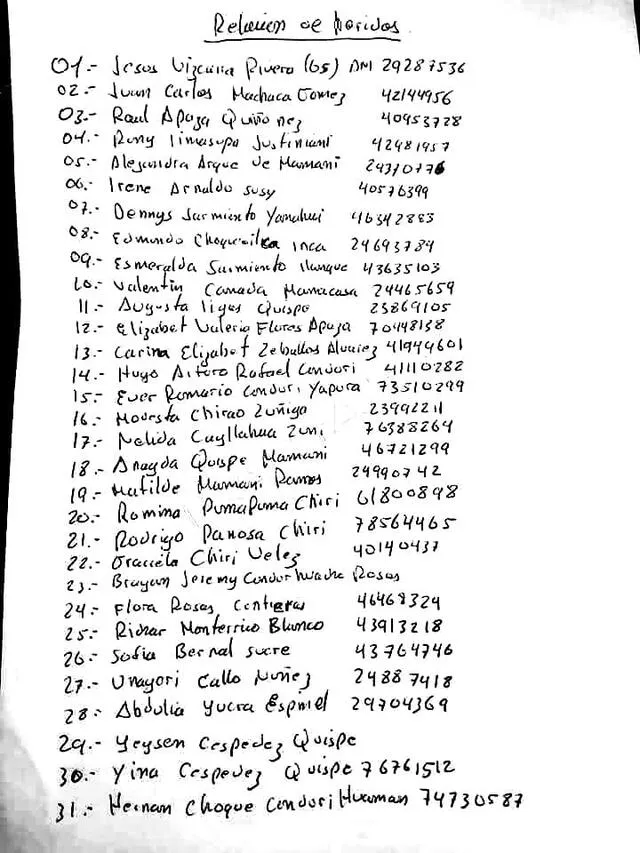 Relacion de heridos
01.- Jesus Vizcarra Rivero (65) DNI 29287536
02.- Juan Carlos Machaca Gomez 42144956
03.- Raul Apaza Quiñonez 40953728
04.- Rony limasupa Justiniani 42481957
05.- Alejandra Arque de Mamani 24370776
06.- Irene Arnaldo susy 40576399
07.- Dennys Sarmiento Yanahui 46342883
08.- Edmundo Inca 24693784
09.- Esmeralda Sarmiento 43635103
10.- Valentin Canada Mamacasa 24465659
11.- Augusta ligas Quispe 23869105
12.- Elizabet Valeria Flores Apaza 70448138
13.- Carina Elizabet Zeballos Alvarez 41944601
14.- Hugo Arturo Rafael Condori 41110282
15.- Ever Romario Condori Yapura 73510299
16.- Modesta Chirao Zuñiga 23992211
17.- Nelida Cuyllahua Zuni 76388264
18.- Anayda Quispe Mamani 46721299
19.- Matilde Mamani Ramos 24990742
20.- Romina PumaPuma Chiri 61800898
21.- Rodrigo Panosa Chiri 78564465
22.- Graciela Chiri Velez 40140437
23.- Brayan Jeremy Condorhuacho Rosas
24.- Flora Rosas Contreras 46468324
25.- Richar Monterrico Blanco 43913218
26.- Sofia Bernal sucre 43764746
27.- Unayori Callo Nuñez 24887418
28.- Abdulia Yucra Espinel 29704369
29.- Yeysen Cespedez Quispe
30.- Yina Cespedez Quispe 76761512
31.- Hernan Choque Condori Huaman 74730587